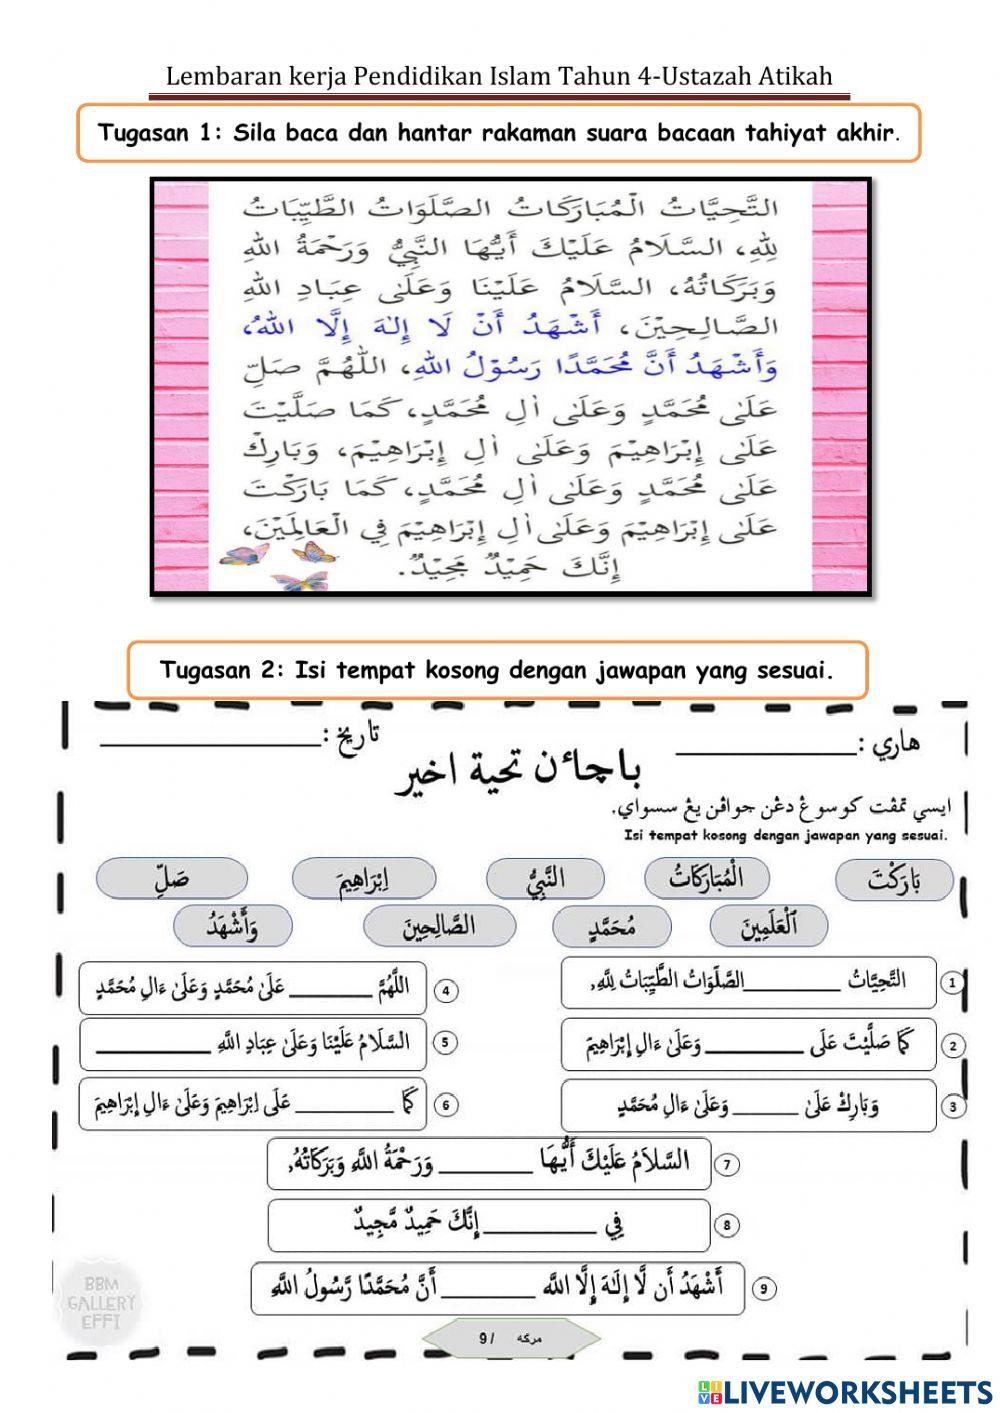 Lembaran kerja Pendidikan Islam Tahun 4-Ustazah Atikah
Tugasan 1: Sila baca dan hantar rakaman suara bacaan tahiyat akhir.
التَّحِيَّاتُ الْمُبَارَكَاتُ الصَّلَوَاتُ الطَّيِّبَاتُ
لِلهِ، السَّلَامُ عَلَيْكَ أَيُّهَا النَّبِيُّ وَرَحْمَةُ اللهِ
وَبَرَكَاتُهُ، السَّلَامُ عَلَيْنَا وَعَلَى عِبَادِ اللهِ
الصَّالِحِيْنَ، أَشْهَدُ أَنْ لَا إِلٰهَ إِلَّا اللهُ،
وَأَشْهَدُ أَنَّ مُحَمَّدًا رَسُوْلُ اللهِ، اَللّٰهُمَّ صَلِّ
عَلَى مُحَمَّدٍ وَعَلَى اٰلِ مُحَمَّدٍ، كَمَا صَلَّيْتَ
عَلَى إِبْرَاهِيْمَ وَعَلَى اٰلِ إِبْرَاهِيْمَ، وَبَارِكْ
عَلَى مُحَمَّدٍ وَعَلَى اٰلِ مُحَمَّدٍ، كَمَا بَارَكْتَ
عَلَى إِبْرَاهِيْمَ وَعَلَى اٰلِ إِبْرَاهِيْمَ فِي الْعَالَمِيْنَ،
إِنَّكَ حَمِيْدٌ مَجِيْدٌ.
Tugasan 2: Isi tempat kosong dengan jawapan yang sesuai.
هاري :____________ تاريخ :____________
باچاءن تحية اخير
ايسي تمڤت كوسوڠ دڠن جواڤن يڠ سسواي.
Isi tempat kosong dengan jawapan yang sesuai.
بَارَكْتَ الْمُبَارَكَاتُ النَّبِيُّ اِبْرَاهِيمَ صَلِّ
ٱلْعَلَمِينَ مُحَمَّدٍ الصَّالِحِينَ وَأَشْهَدُ
1 التَّحِيَّاتُ ________الصَّلَوَاتُ الطَّيِّبَاتُ لِلَّهِ,
2 كَمَا صَلَّيْتَ عَلَى ________ وَعَلَىٰ ءَالِ إِبْرَاهِيمَ
3 وَبَارِكْ عَلَىٰ ________ وَعَلَىٰ ءَالِ مُحَمَّدٍ
4 اللَّهُمَّ ________ عَلَىٰ مُحَمَّدٍ وَعَلَىٰ ءَالِ مُحَمَّدٍ
5 السَّلَامُ عَلَيْنَا وَعَلَىٰ عِبَادِ اللَّهِ ________
6 كَمَا ________ عَلَى اِبْرَاهِيمَ وَعَلَىٰ ءَالِ إِبْرَاهِيمَ
7 السَّلَامُ عَلَيْكَ أَيُّهَا ________ وَرَحْمَةُ اللَّهِ وَبَرَكَاتُهُ,
8 فِي ________ إِنَّكَ حَمِيدٌ مَّجِيدٌ
9 أَشْهَدُ أَن لَّا إِلَـٰهَ إِلَّا اللَّه ________ أَنَّ مُحَمَّدًا رَّسُولُ اللَّهِ
BBM
GALLERY
EFFI
مركه / 9
LIVEWORKSHEETS